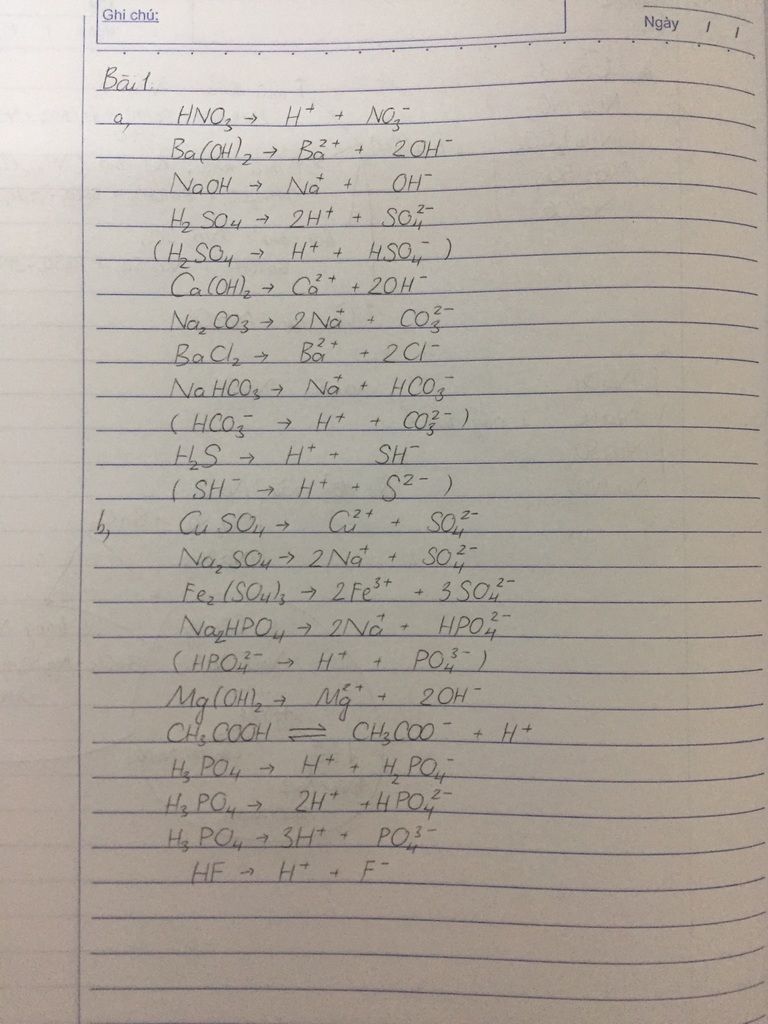 Ghi chú:
Ngày / /
Bài 1:
a, HNO₃ → H⁺ + NO₃⁻
Ba(OH)₂ → Ba²⁺ + 2OH⁻
NaOH → Na⁺ + OH⁻
H₂SO₄ → 2H⁺ + SO₄²⁻
(H₂SO₄ → H⁺ + HSO₄⁻)
Ca(OH)₂ → Ca²⁺ + 2OH⁻
Na₂CO₃ → 2Na⁺ + CO₃²⁻
BaCl₂ → Ba²⁺ + 2Cl⁻
NaHCO₃ → Na⁺ + HCO₃⁻
(HCO₃⁻ → H⁺ + CO₃²⁻)
H₂S → H⁺ + SH⁻
(SH⁻ → H⁺ + S²⁻)
b, CuSO₄ → Cu²⁺ + SO₄²⁻
Na₂SO₄ → 2Na⁺ + SO₄²⁻
Fe₂(SO₄)₃ → 2Fe³⁺ + 3SO₄²⁻
Na₂HPO₄ → 2Na⁺ + HPO₄²⁻
(HPO₄²⁻ → H⁺ + PO₄³⁻)
Mg(OH)₂ → Mg²⁺ + 2OH⁻
CH₃COOH ⇌ CH₃COO⁻ + H⁺
H₃PO₄ → H⁺ + H₂PO₄⁻
H₃PO₄ → 2H⁺ + HPO₄²⁻
H₃PO₄ → 3H⁺ + PO₄³⁻
HF → H⁺ + F⁻